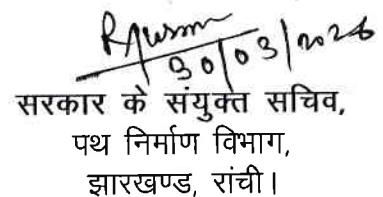 30/03/2026
सरकार के संयुक्त सचिव,
पथ निर्माण विभाग,
झारखण्ड, रांची।